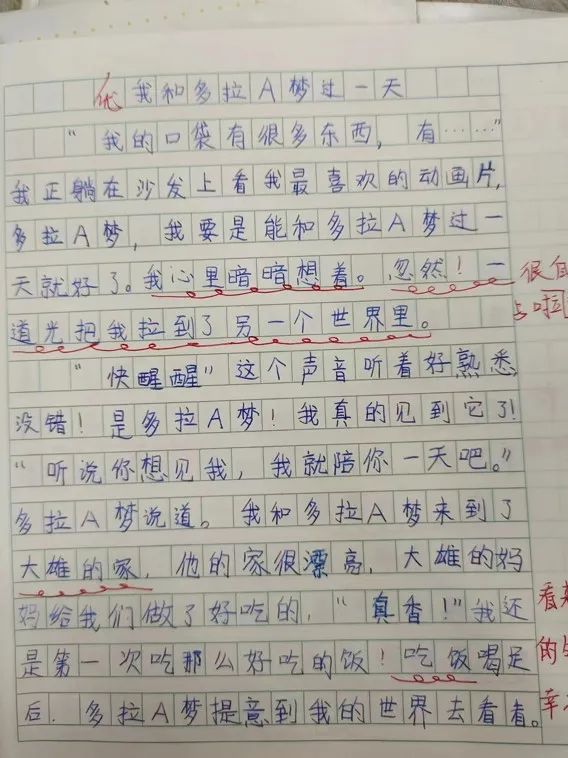 优 我和多拉A梦过一天
“我的口袋有很多东西，有……”
我正躺在沙发上看我最喜欢的动画片，
多拉A梦，我要是能和多拉A梦过一
天就好了。我心里暗暗想着。忽然！一
道光把我拉到了另一个世界里。
很自
与啦
“快醒醒”这个声音听着好熟悉
没错！是多拉A梦！我真的见到它了！
“听说你想见我，我就陪你一天吧。”
多拉A梦说道。我和多拉A梦来到了
大雄的家，他的家很漂亮，大雄的妈
妈给我们做了好吃的，“真香！”我还
是第一次吃那么好吃的饭！吃饭喝足
后．多拉A梦提意到我的世界去看看。
看
的
幸